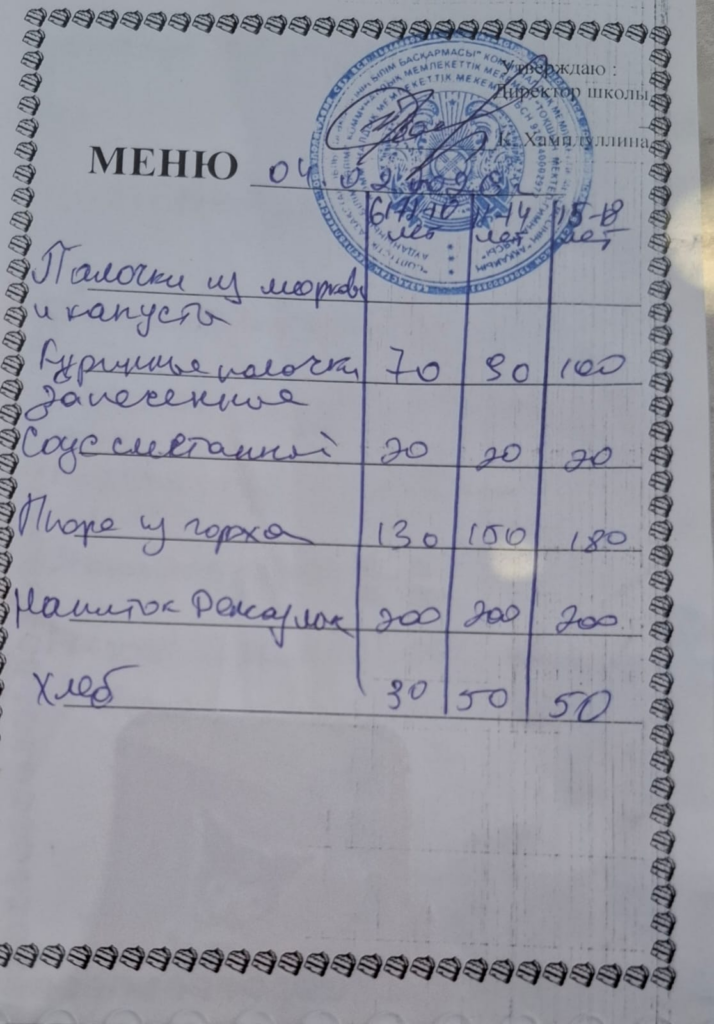 Утверждаю :
Директор школы
К. Хамидуллина
МЕНЮ 04.02.202
6(7)-10 лет 11-14 лет 15-18 лет
Палочки из моркови
и капусты
Куриные палочки 70 90 100
запеченные
Соус сметанный 20 20 20
Пюре из гороха 130 150 180
Напиток 200 200 200
Хлеб 30 50 50